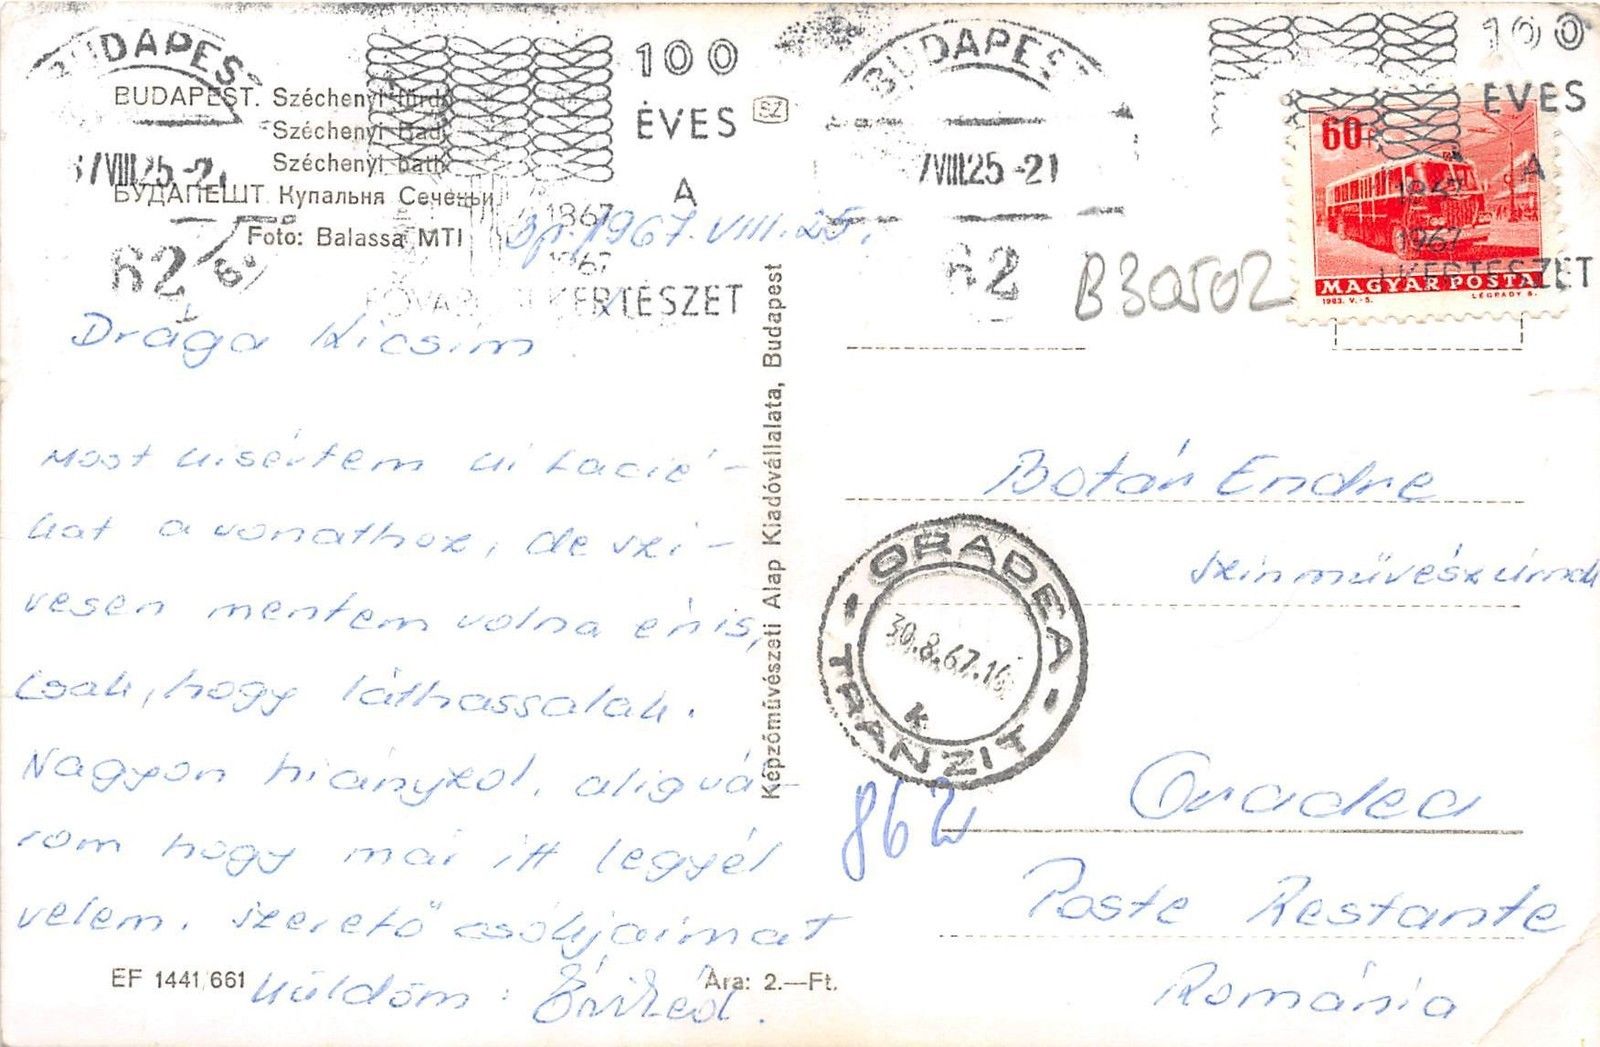 BUDAPEST
BUDAPEST. Széchenyi fürdő
Széchenyi Bad
Széchenyi bath
БУДАПЕШТ. Купальня Сеченьи
Foto: Balassa MTI
67 VIII.25-21
62
100
ÉVES
A
1867
1967
FŐVÁROSI KERTÉSZET
SZ
Bp, 1967. VIII. 25.
Drága Kicsim
Most kisértem ki Lacié-
kat a vonathoz, de szi-
vesen mentem volna én is,
csak, hogy láthassalak.
Nagyon hiányzol, alig vá-
rom hogy már itt legyél
velem. Szerető csókjaimat
küldöm:
EF 1441/661
Ára: 2.—Ft.
Képzőművészeti Alap Kiadóvállalata, Budapest
BUDAPEST
7 VIII.25-21
62
100
ÉVES
A
1867
1967
I KERTÉSZET
60f
MAGYAR POSTA
1963. V.-S.
LÉGRÁDY S.
B30502
Botár Endre
szinművész úrnak
ORADEA
30.8.67.16
k
TRANZIT
862
Oradea
Poste Restante
Románia